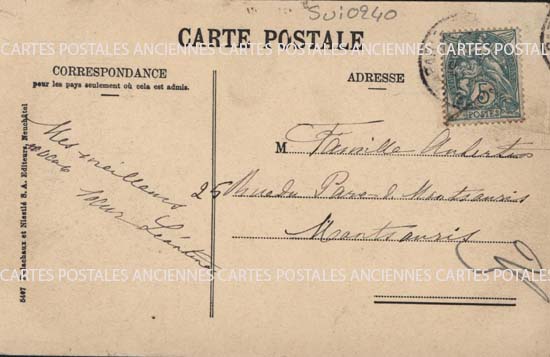 Sui0240
CARTE POSTALE
CARTES POSTALES ANCIENNES CARTES POSTALES ANCIENNES CARTES POSTALES ANCIENNES
CORRESPONDANCE
pour les pays seulement où cela est admis.
ADRESSE
5c
POSTES
Mes meilleurs
M Famille Aubert
25 Rue du Parc de Montsouris
Montsouris
CARTES POSTALES ANCIENNES CARTES POSTALES ANCIENNES CARTES POSTALES ANCIENNES
5407 Delachaux et Niestlé S. A. Editeurs, Neuchâtel